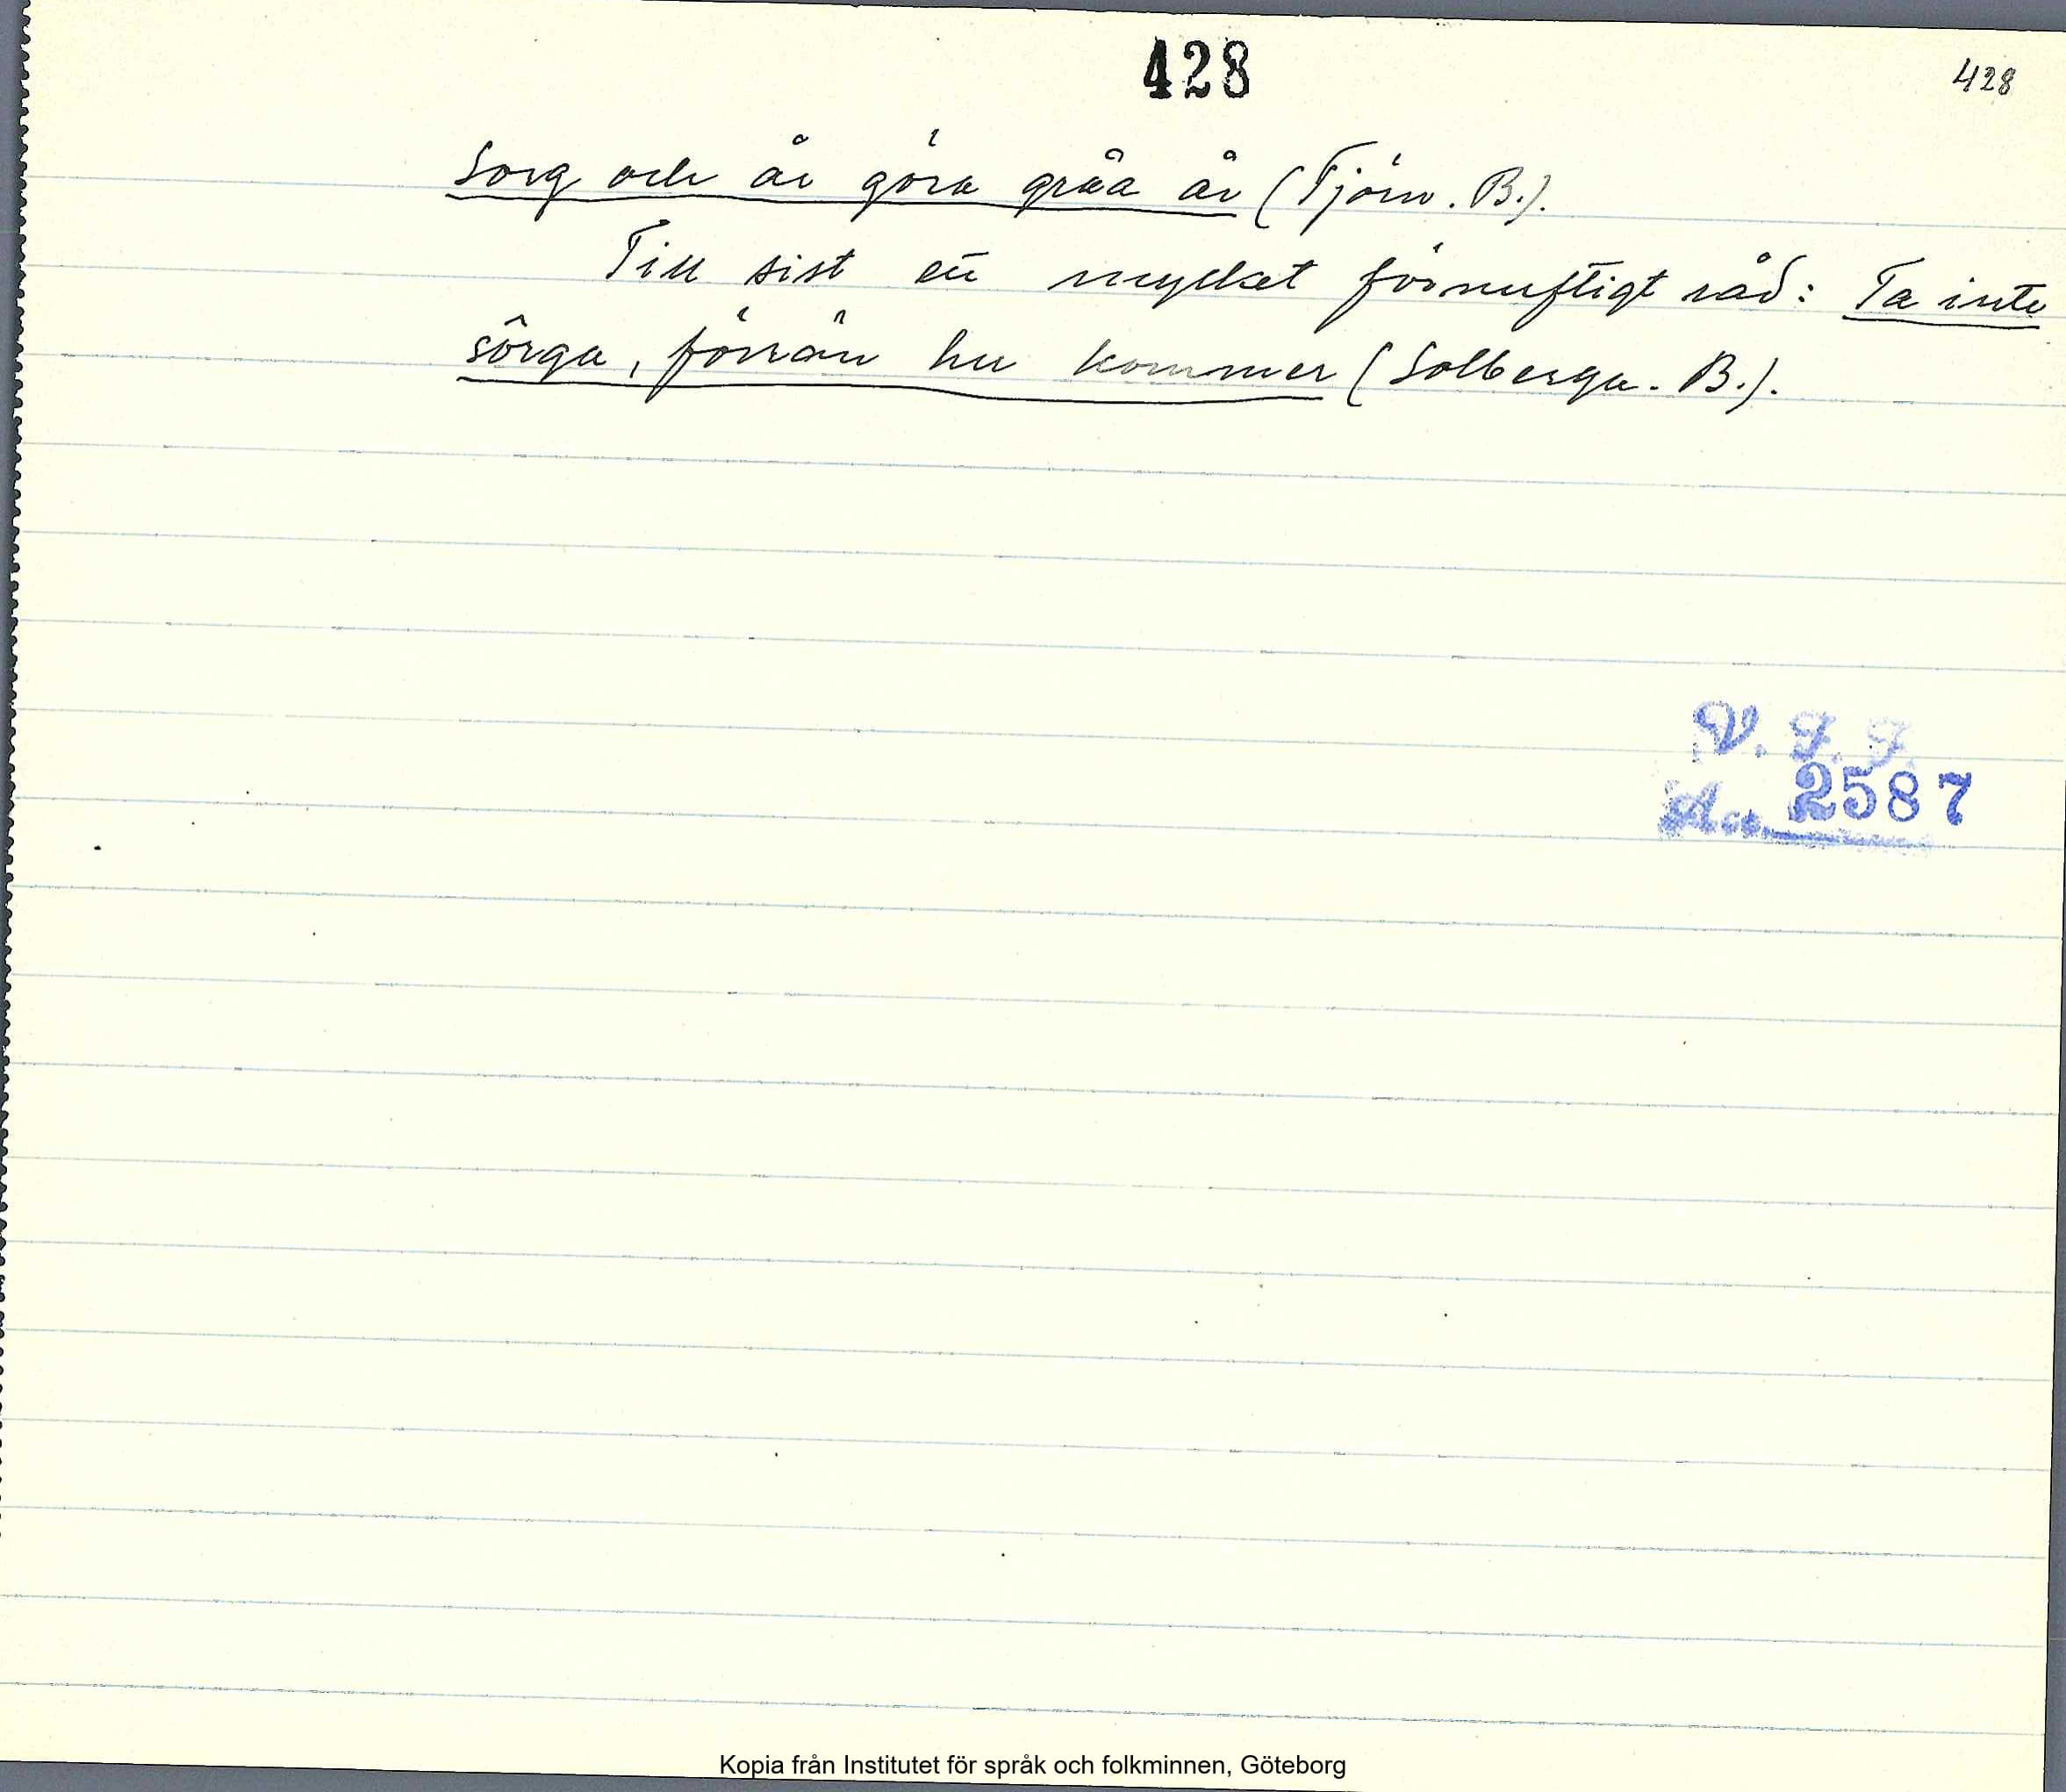 428
428
Sorg och år göra gråa år (Tjörn. B.).
Till sist ett mycket förnuftigt råd: Ta inte
sörga, förrän hu kommer (Solberga. B.).
V. F. F.
Acc. 2587
Kopia från Institutet för språk och folkminnen, Göteborg